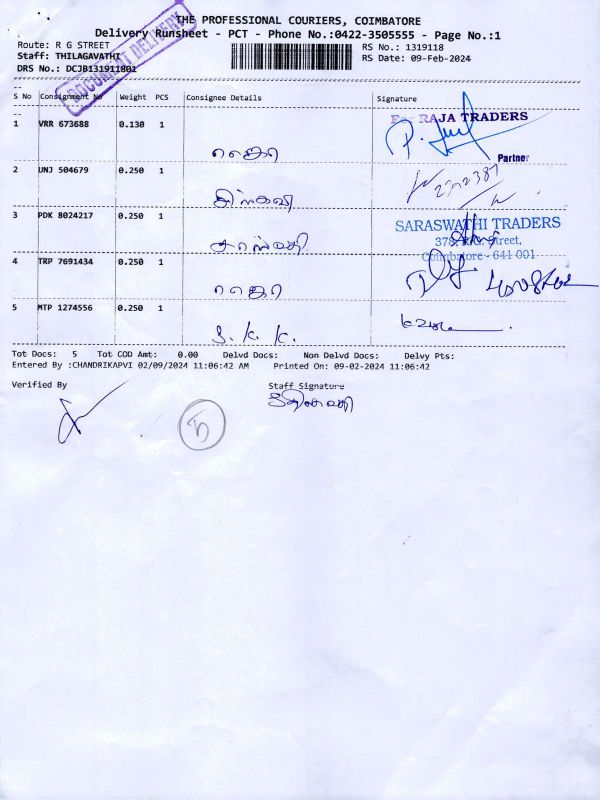 THE PROFESSIONAL COURIERS, COIMBATORE
Delivery Runsheet - PCT - Phone No.:0422-3505555 - Page No.:1
Route: R G STREET
RS No.: 1319118
Staff: THILAGAVATHI
RS Date: 09-Feb-2024
DRS No.: DCJB131911801
DOCUMENT DELIVERY
S No Consignment No Weight PCS Consignee Details Signature
1 VRR 673688 0.130 1
For RAJA TRADERS
Partner
2 UNJ 504679 0.250 1
3 PDK 8024217 0.250 1
சரஸ்வதி
SARASWATHI TRADERS
378, R.G. Street,
Coimbatore - 641 001
4 TRP 7691434 0.250 1
5 MTP 1274556 0.250 1
S. K. K.
Tot Docs: 5 Tot COD Amt: 0.00 Delvd Docs: Non Delvd Docs: Delvy Pts:
Entered By :CHANDRIKAPVI 02/09/2024 11:06:42 AM Printed On: 09-02-2024 11:06:42
Verified By Staff Signature
5